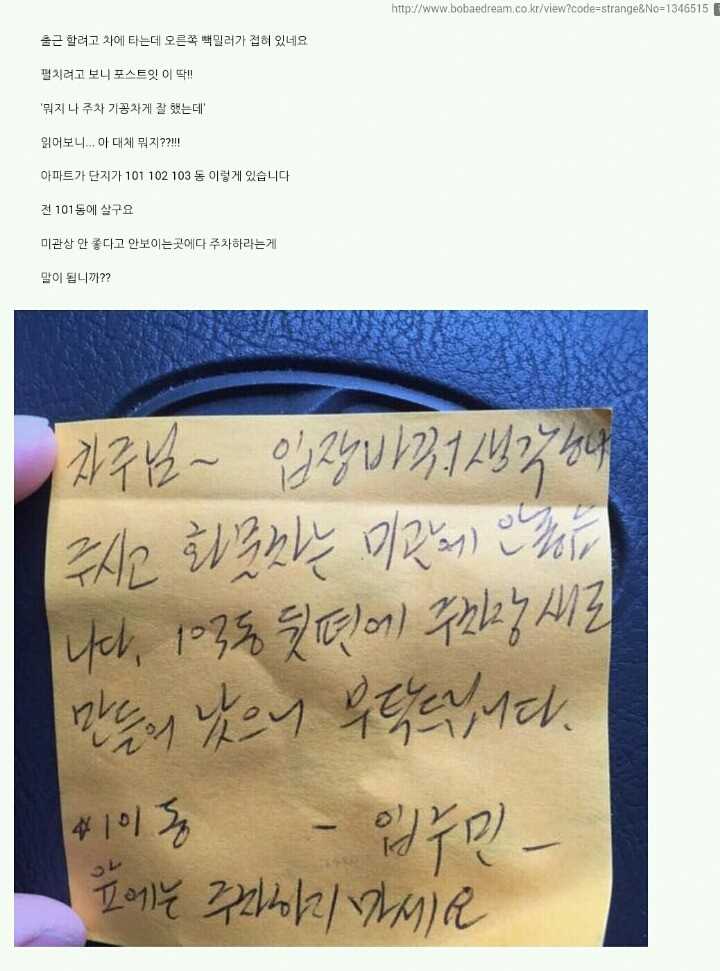 http://www.bobaedream.co.kr/view?code=strange&No=1346515
출근 할려고 차에 타는데 오른쪽 빽밀러가 접혀 있네요
펼치려고 보니 포스트잇 이 딱!!
'뭐지 나 주차 기꽁차게 잘 했는데'
읽어보니... 아 대체 뭐지??!!!
아파트가 단지가 101 102 103 동 이렇게 있습니다
전 101동에 살구요
미관상 안 좋다고 안보이는곳에다 주차하라는게
말이 됩니까??
차주님~ 입장바꿔 생각하
주시고 화물차는 미관에 안좋습
니다, 103동 뒷편에 주차장 새로
만들어 놨으니 부탁드립니다.
#101동 - 입주민 -
앞에는 주차하지 마세요